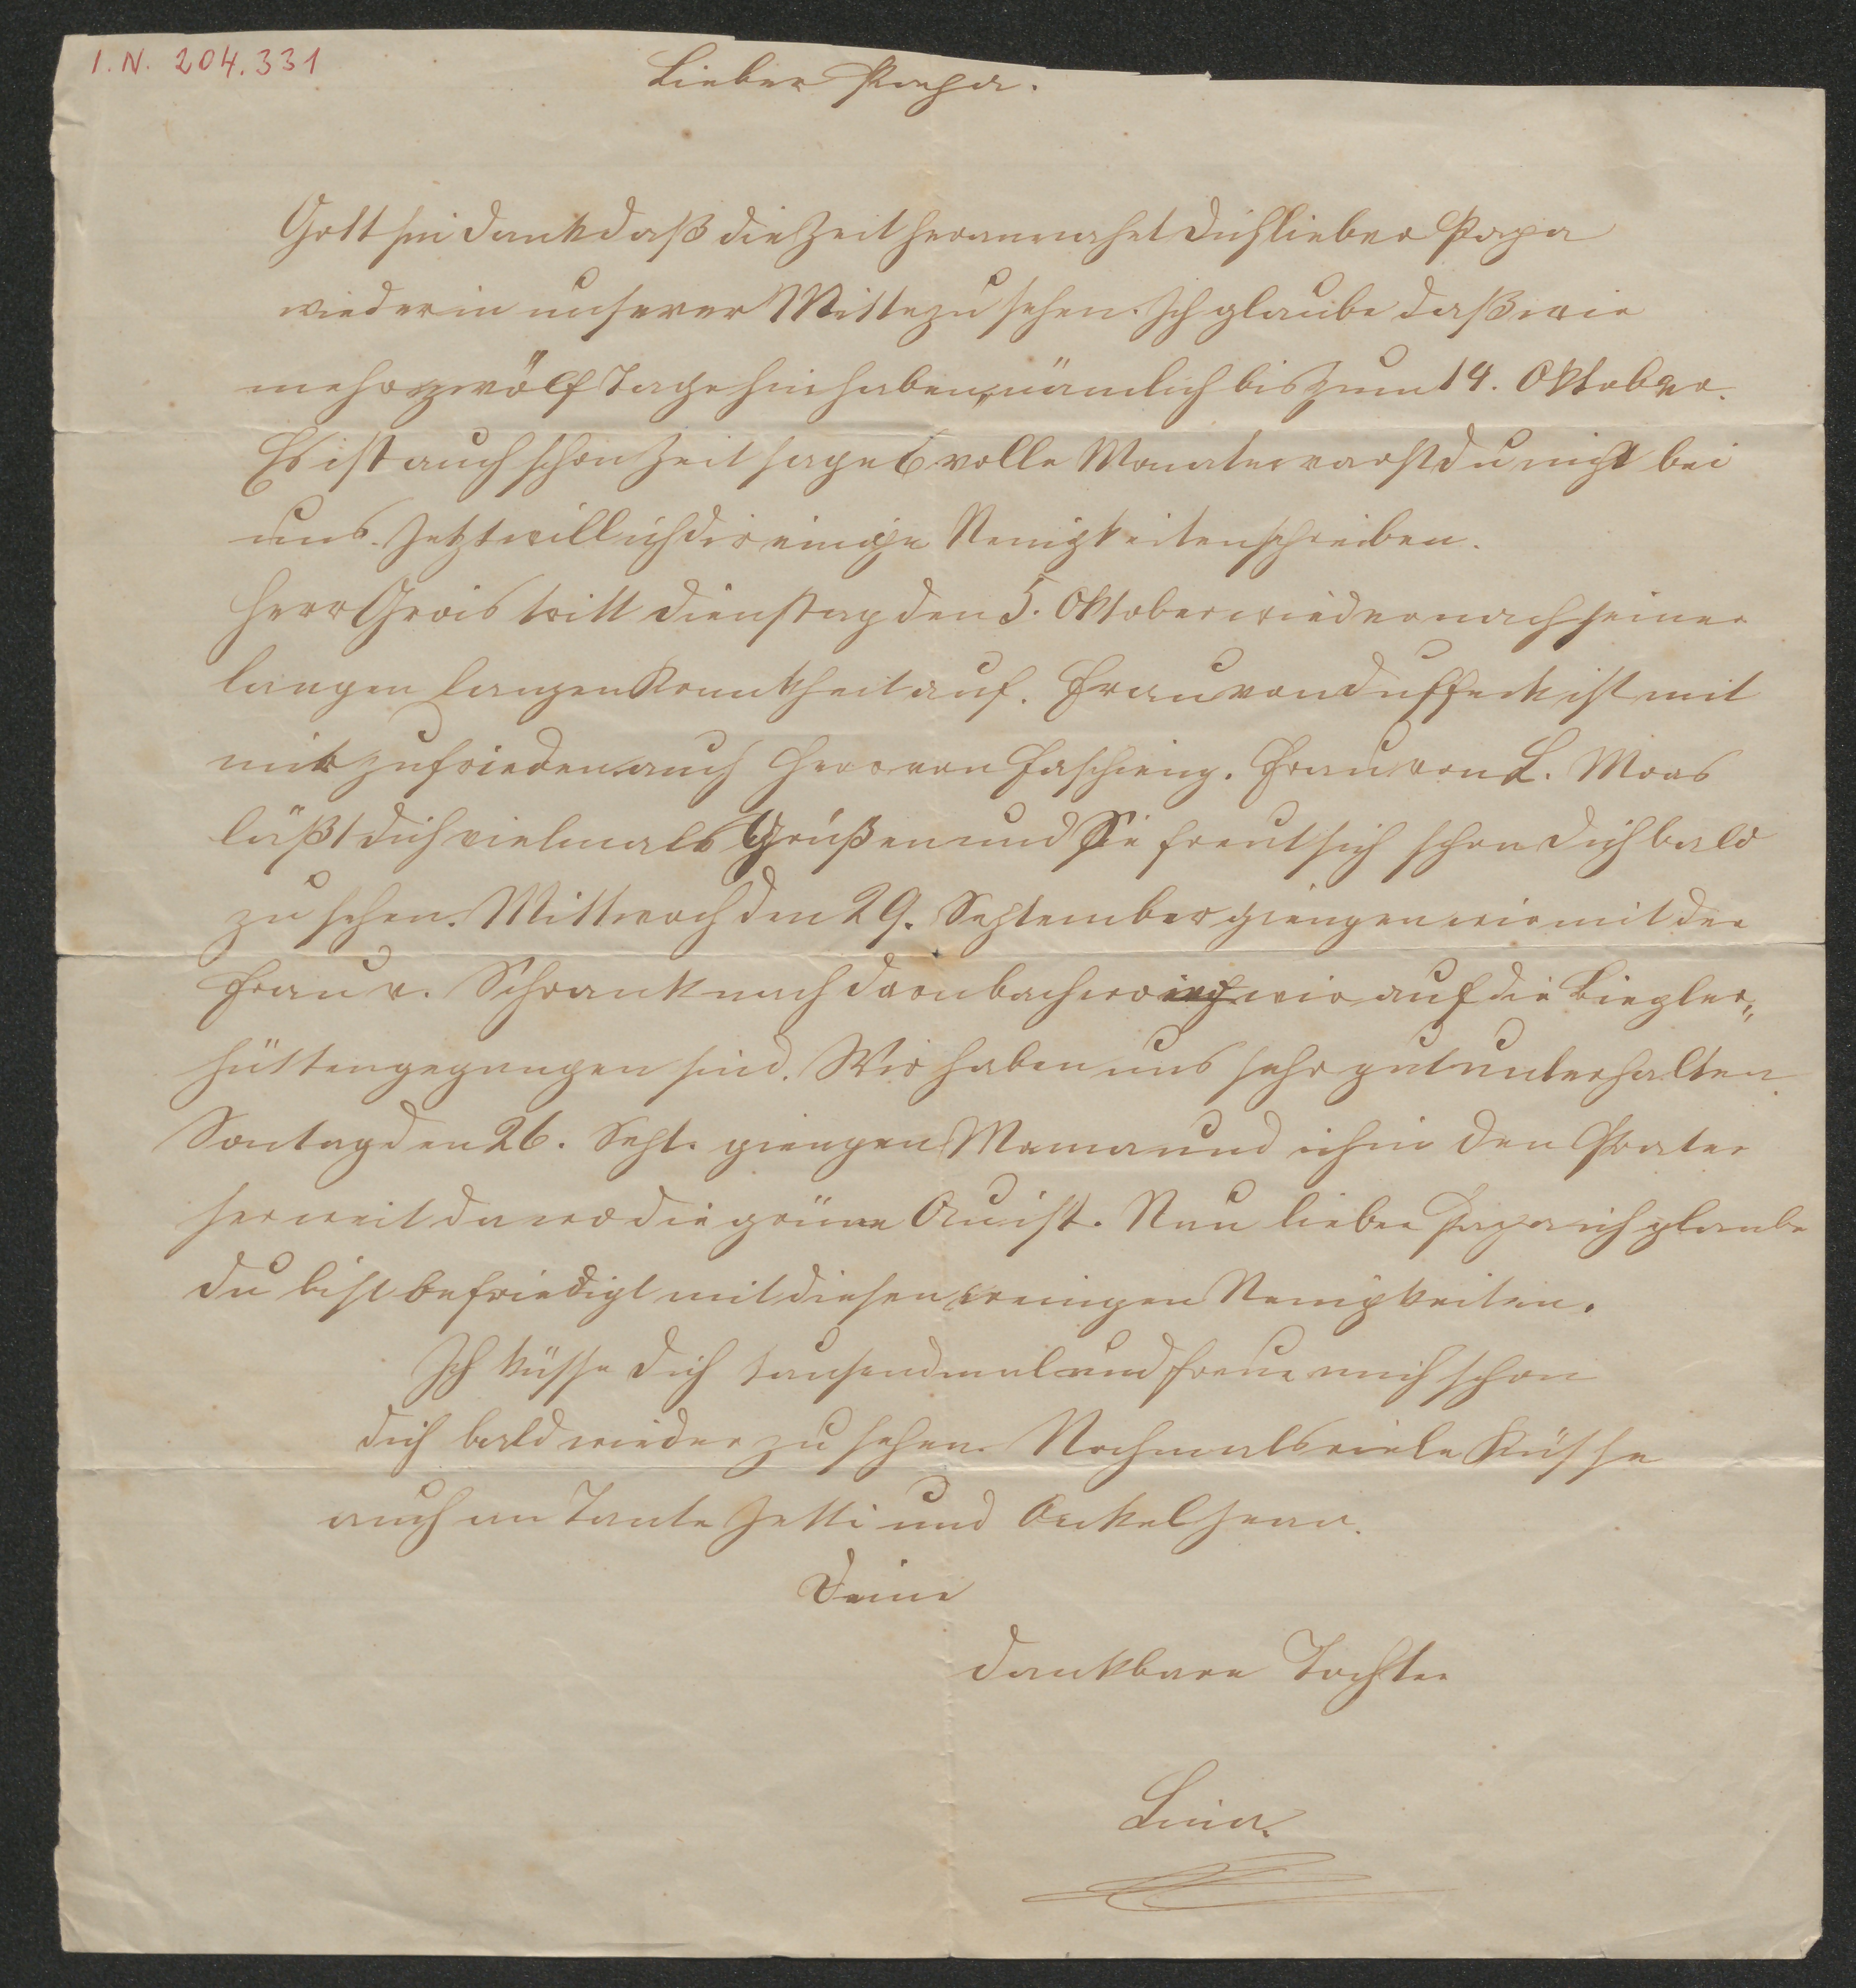 I. N. 204.331
Lieber Papa.
Gott sei Dank daß die Zeit herannahet dich lieber Papa
wieder in unserer Mitte zu sehen. Ich glaube daß wir
mehr zwölf Tage hin haben, nämlich bis zum 14. Oktober.
Es ist auch schon Zeit sage 6 volle Monate warst du nicht bei
uns. Jetzt will ich dir einige Neuigkeiten schreiben.
Herr Grois tritt Dienstag den 5. Oktober wieder nach seiner
langen langen Krankheit auf. Frau von Duffeck ist mit
mir zufrieden auch Herr von Fasching. Frau von L. Moas
läßt dich vielmals Grüßen und Sie freut sich schon dich bald
zu sehen. Mittwoch den 29. September giengen wir mit der
Frau v. Schrank nach Dornbach wo wir auf die Liegler„
hütten gegangen sind. Wir haben uns sehr gut unterhalten
Sontag den 26. Sept. giengen Mama und ich in den Prater
so weit da wo die grüne Au ist. Nun lieber Papa ich glaube
du bist befriedigt mit diesen wenigen Neuigkeiten.
Ich küsse dich tausendmal und freue mich schon
dich bald wieder zu sehen. Nochmals viele Küsse
auch an Tante Jetti und Onkel Jean.
Deine
dankbare Tochter
Lina.